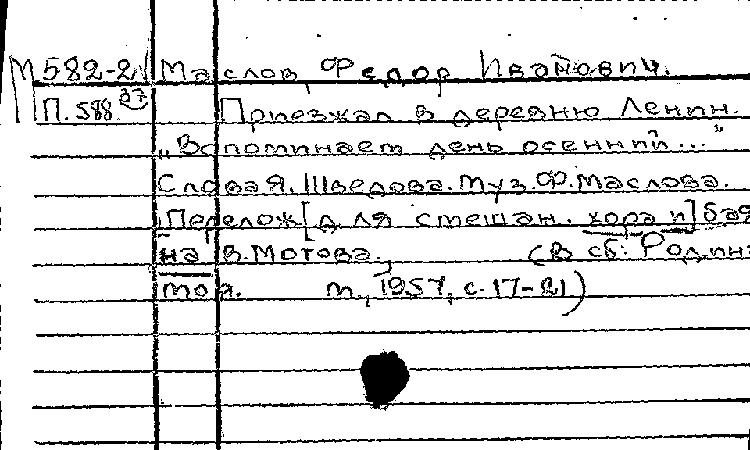 М582-2 Маслов, Федор Иванович.
П.588 27 Приезжал в деревню Ленин.
„Вспоминает день осенний..."
Слова Я. Шведова. Муз. Ф. Маслова.
Перелож[для смешан. хора и] бая
на В. Мотова. (В сб: Родина
моя. М., 1957, с. 17-21)